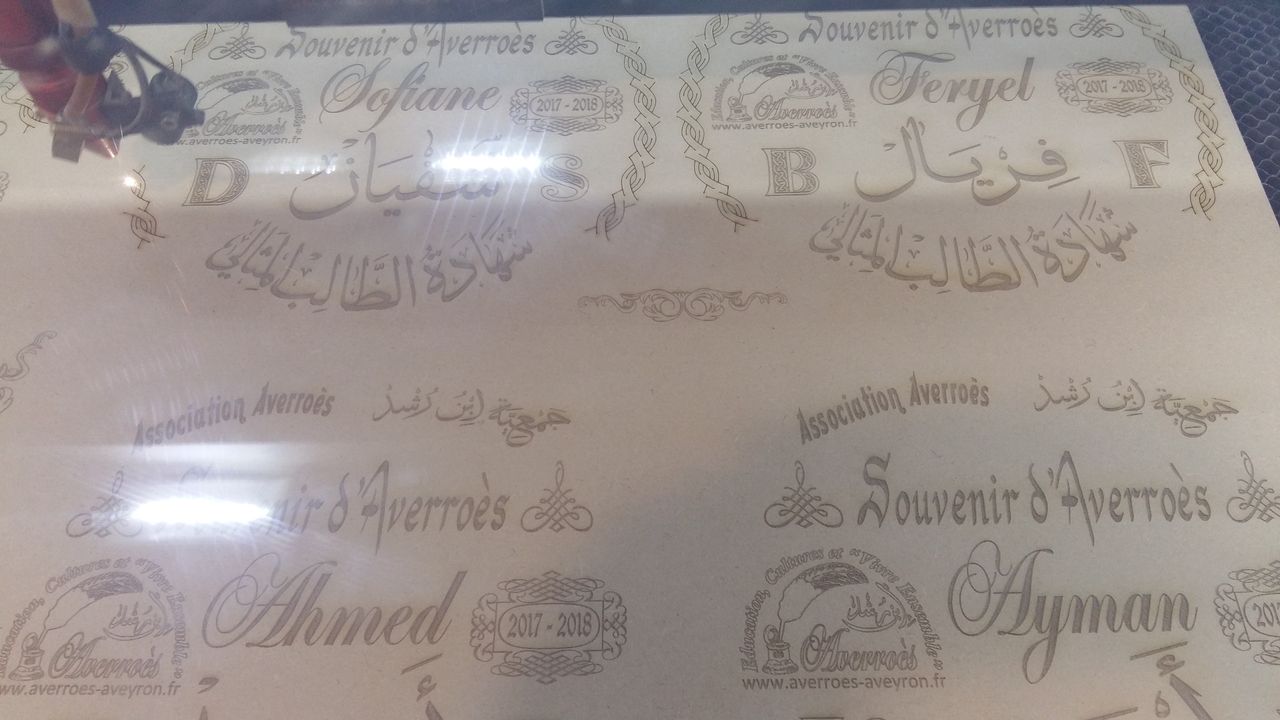 Souvenir d'Averroès
Sofiane
2017 - 2018
Averroès
www.averroes-aveyron.fr
D سفيان S
شَهَادَةُ الطَّالِبِ المِثَالِي
Souvenir d'Averroès
Education, Cultures et "Vivre Ensemble"
Feryel
2017 - 2018
Averroès
www.averroes-aveyron.fr
B فِرْيَال F
شَهَادَةُ الطَّالِبِ المِثَالِي
Association Averroès جَمْعِيَّة اِبْن رُشْد
Souvenir d'Averroès
Education, Cultures et "Vivre Ensemble"
Ahmed
2017 - 2018
Averroès
www.averroes-aveyron.fr
Association Averroès جَمْعِيَّة اِبْن رُشْد
Souvenir d'Averroès
Education, Cultures et "Vivre Ensemble"
Ayman
Averroès
www.averroes-aveyron.fr